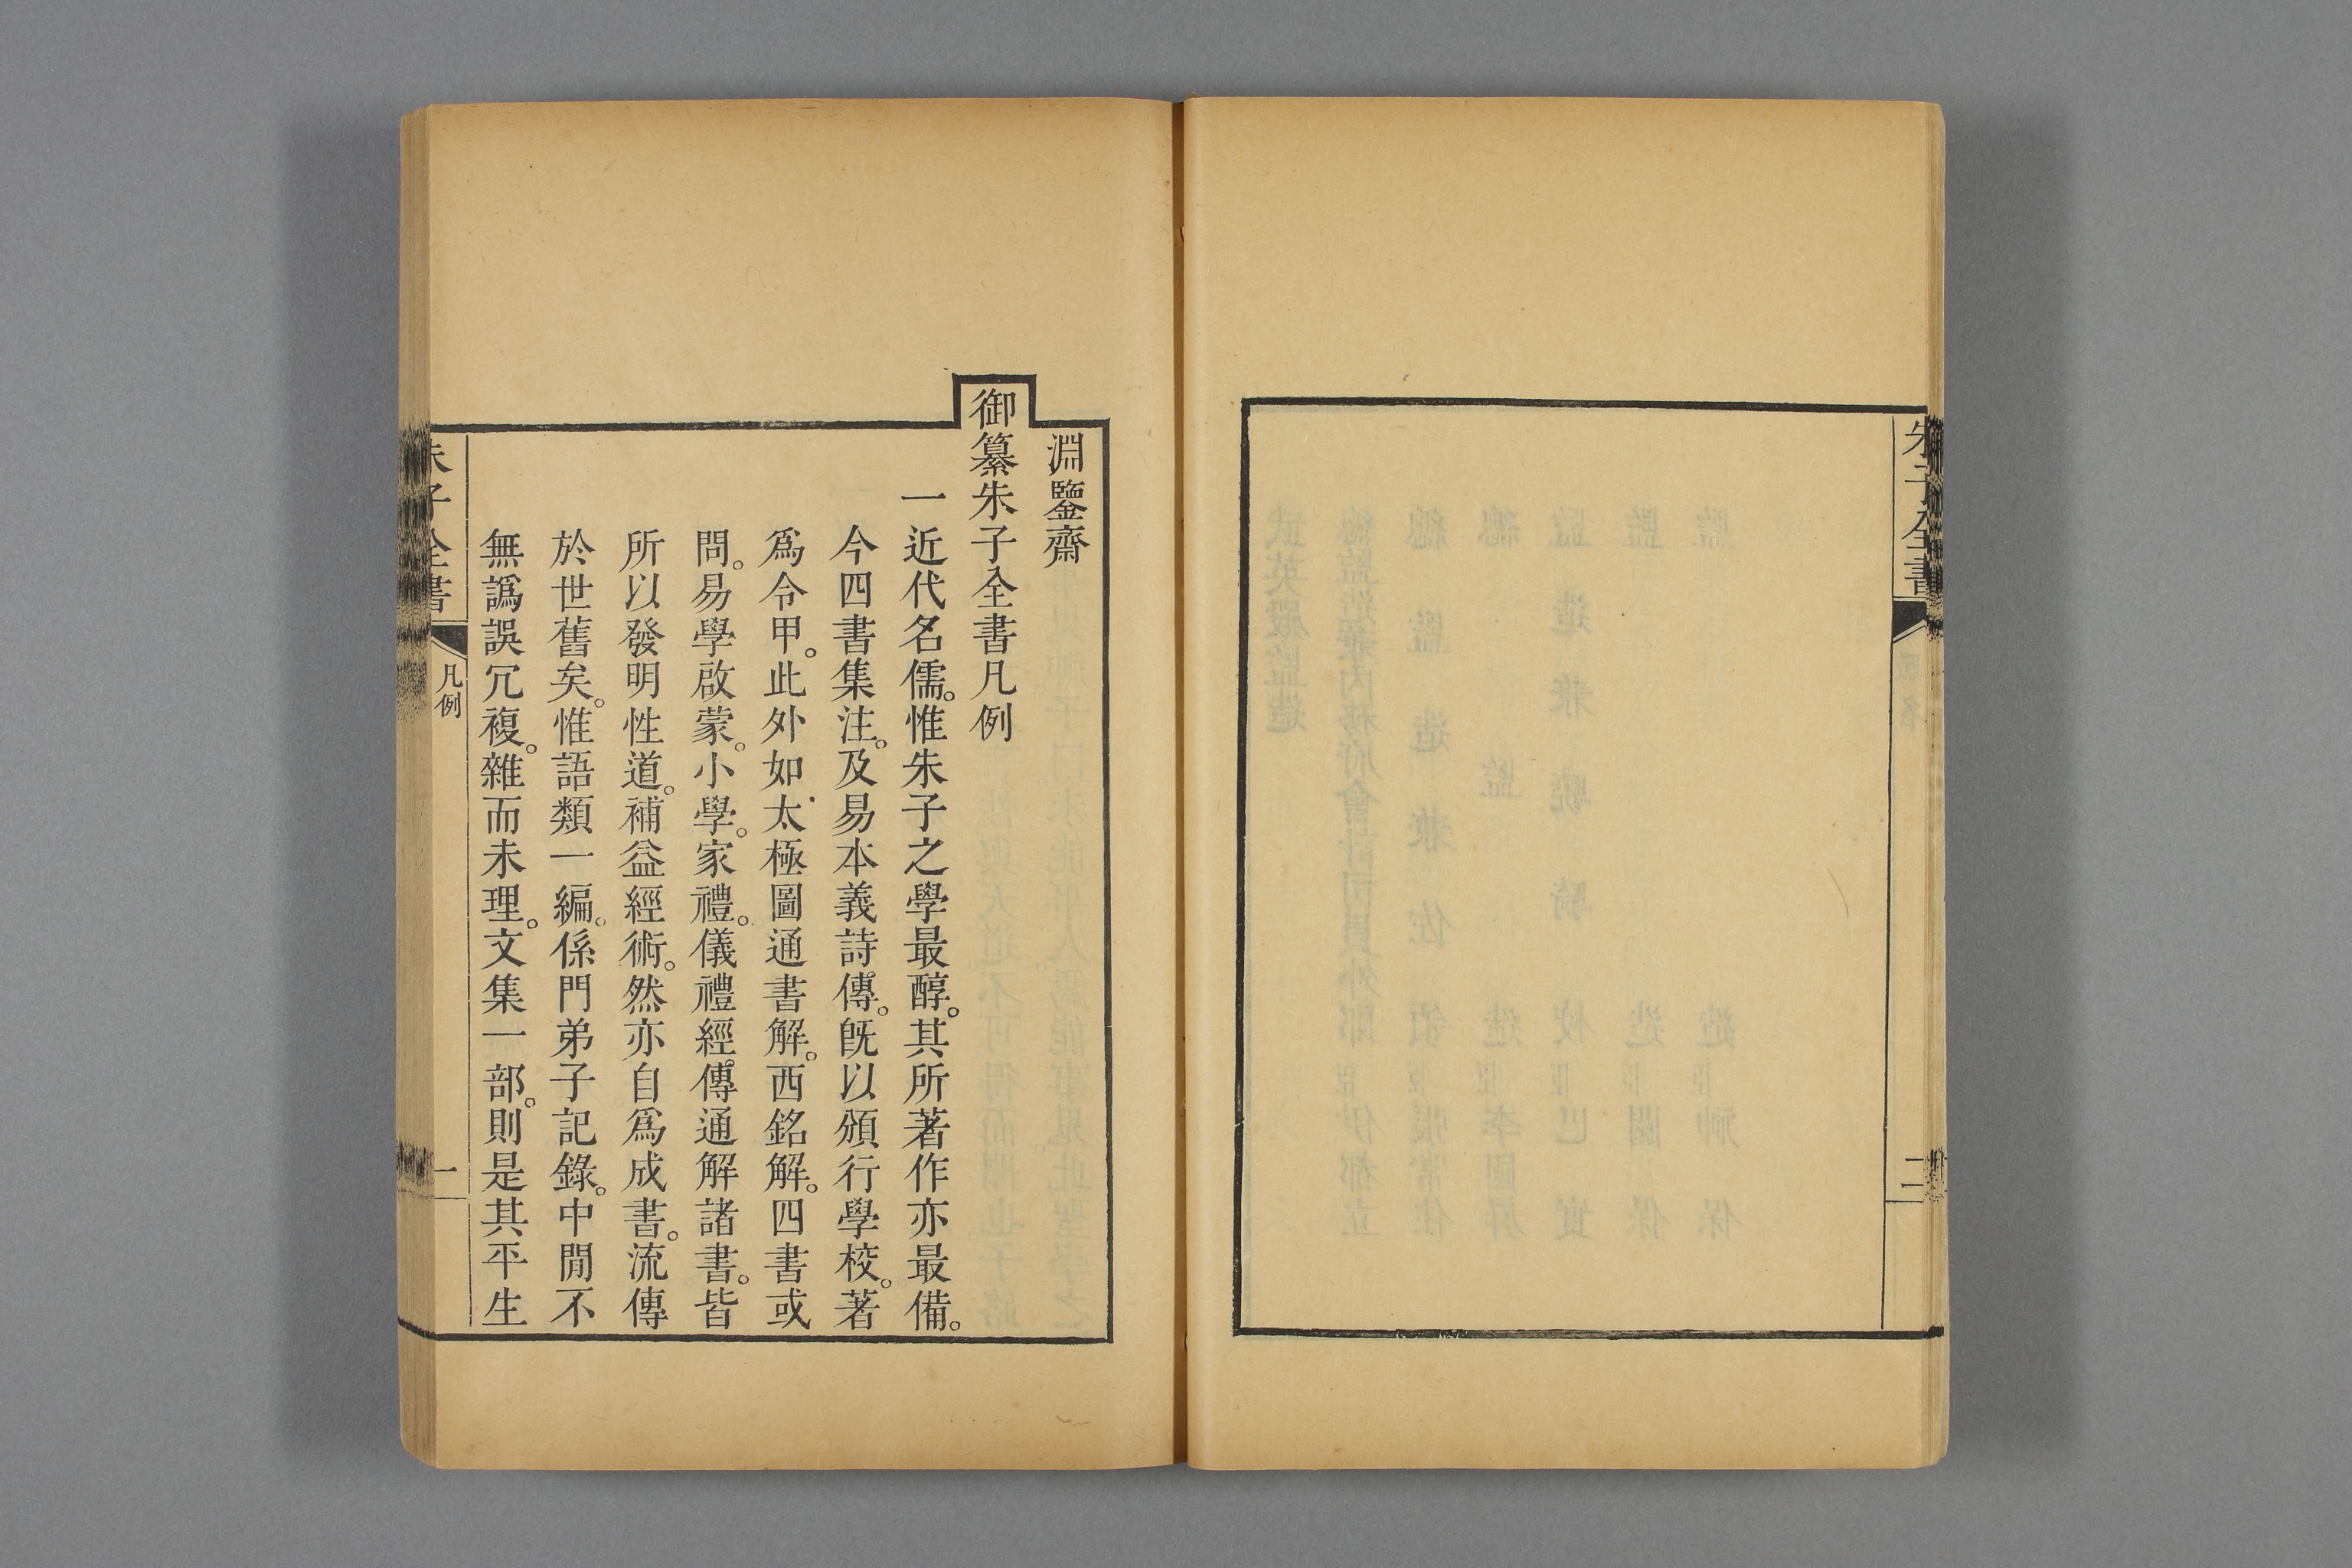 朱子全書
二
淵鑒齋
御纂朱子全書凡例
一近代名儒。惟朱子之學最醇。其所著作亦最備。
今四書集注。及易本義詩傳。旣以頒行學校。著
爲令甲。此外如太極圖通書解。西銘解。四書或
問。易學啟蒙。小學。家禮。儀禮經傳通解諸書。皆
所以發明性道。補益經術。然亦自爲成書。流傳
於世舊矣。惟語類一編。係門弟子記錄。中閒不
無譌誤冗複。雜而未理。文集一部。則是其平生
朱子全書
凡例
一